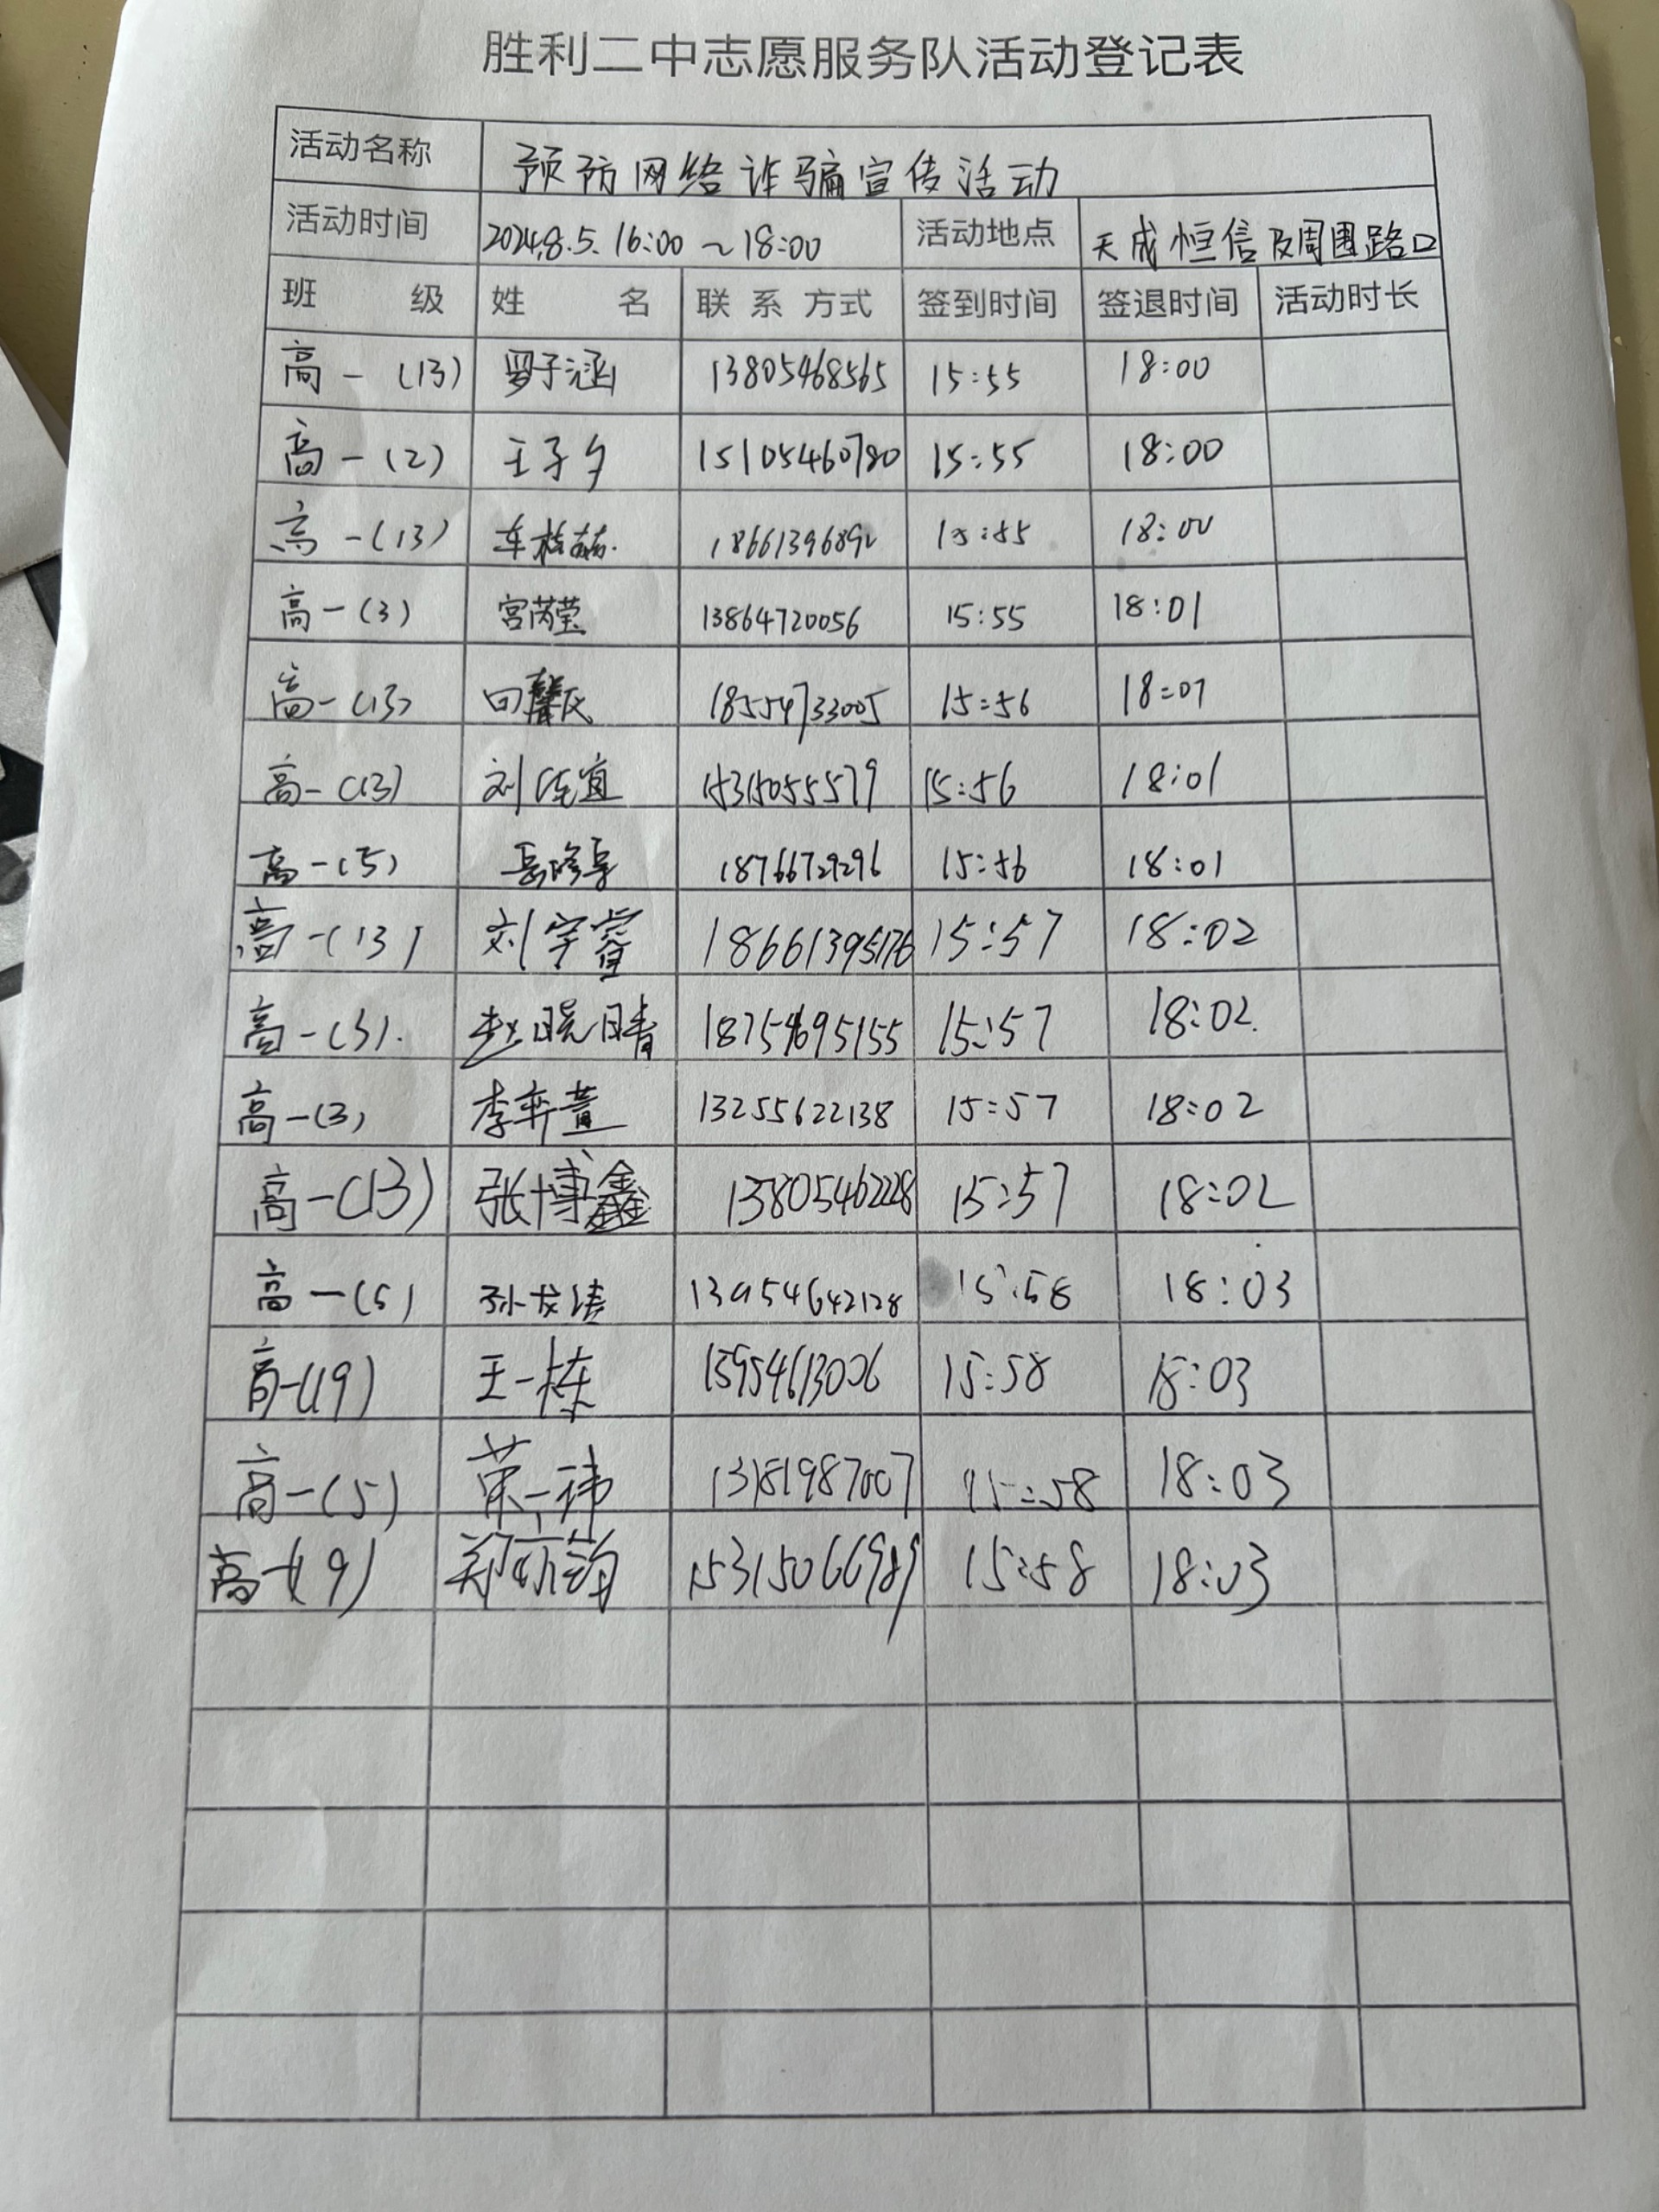 胜利二中志愿服务队活动登记表
活动名称 预防网络诈骗宣传活动
活动时间 2024.8.5. 16:00～18:00 活动地点 天成恒信及周围路口
班 级 姓 名 联 系 方式 签到时间 签退时间 活动时长
高一（13） 罗子涵 13805468565 15:55 18:00
高一（2） 王子夕 15105460780 15:55 18:00
高一（13） 车 1866139689 15:55 18:00
高一（3） 宫芮莹 13864720056 15:55 18:01
高一（13） 18554733005 15:56 18:01
高一（13） 刘佳宜 15315055579 15:56 18:01
高一（5） 18766729296 15:56 18:01
高一（13） 刘宇睿 18661395176 15:57 18:02
高一（3）. 赵晓晴 18754695155 15:57 18:02.
高一（3） 李弈萱 13255622138 15:57 18:02
高一（13） 张博鑫 13805462228 15:57 18:02
高一（5） 孙龙涛 13954642128 15:58 18:03
高一（19） 王一栋 15954613006 15:58 18:03
高一（5） 荣一祎 13181987007 15:58 18:03
高一（9） 郑亦钧 15315066989 15:58 18:03